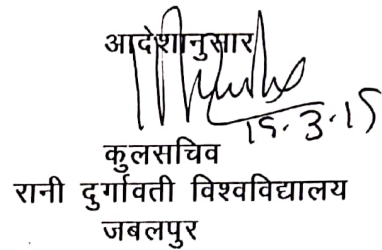 आदेशानुसार
19.3.15
कुलसचिव
रानी दुर्गावती विश्वविद्यालय
जबलपुर